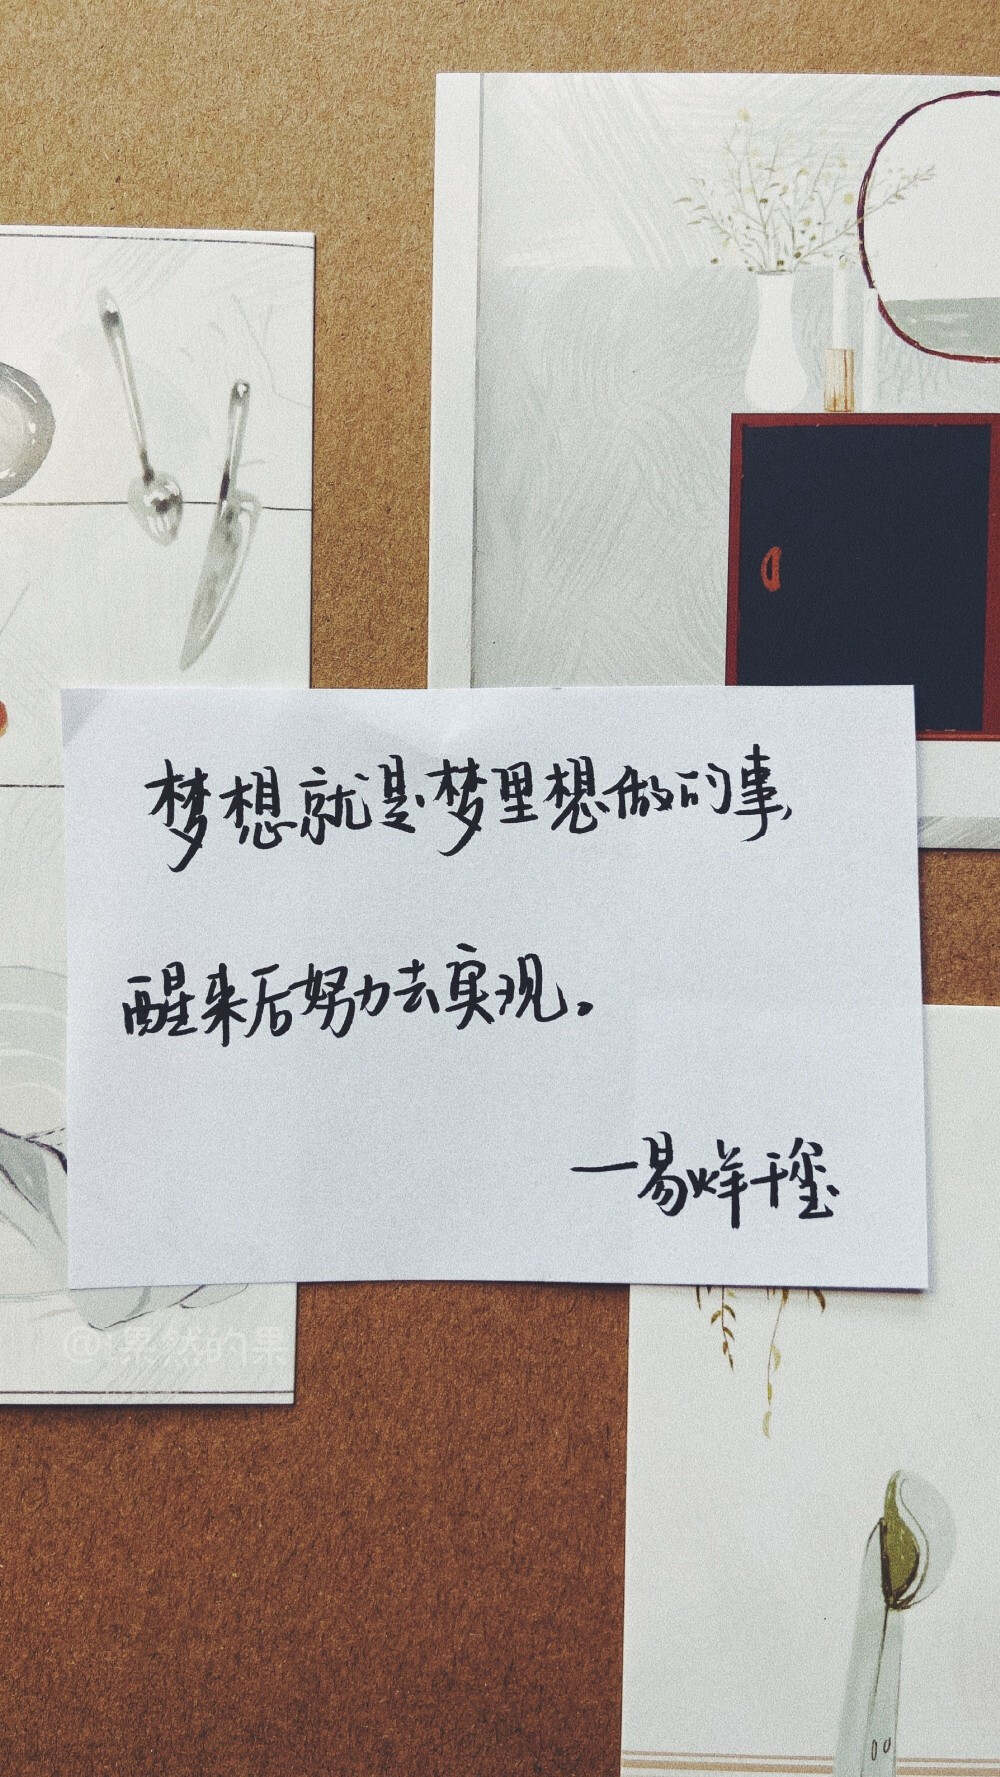 梦想就是梦里想做的事,
醒来后努力去实现。
—易烊千玺
@果然的果